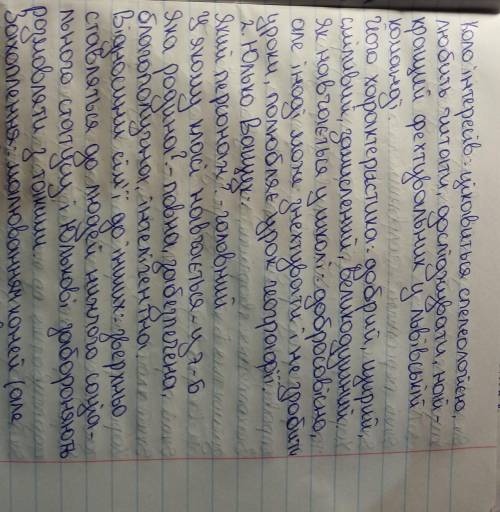 Коло інтересів: цікавиться спелеологією,
любить читати, досліджувати, най-
кращий фехтувальник у львівській
команді.
Його характеристика: добрий, щирий,
сміливий, замислений, великодушний,
як навчається у школі: добросовісно,
але іноді може знехтувати і не зробити
уроки, полюбляє урок географії.
2. Юлько Ващук:
Який персонаж? - головний
у якому класі навчається - у 7-Б
Яка родина? - повна, забезпечена,
благополучна, інтелігентна.
Відношення сім'ї до інших: зверхньо
ставляться до людей нижчого соціа-
льного статусу; Юлькові забороняють
розмовляти з тошим.
Захоплення: малюванням коней (але